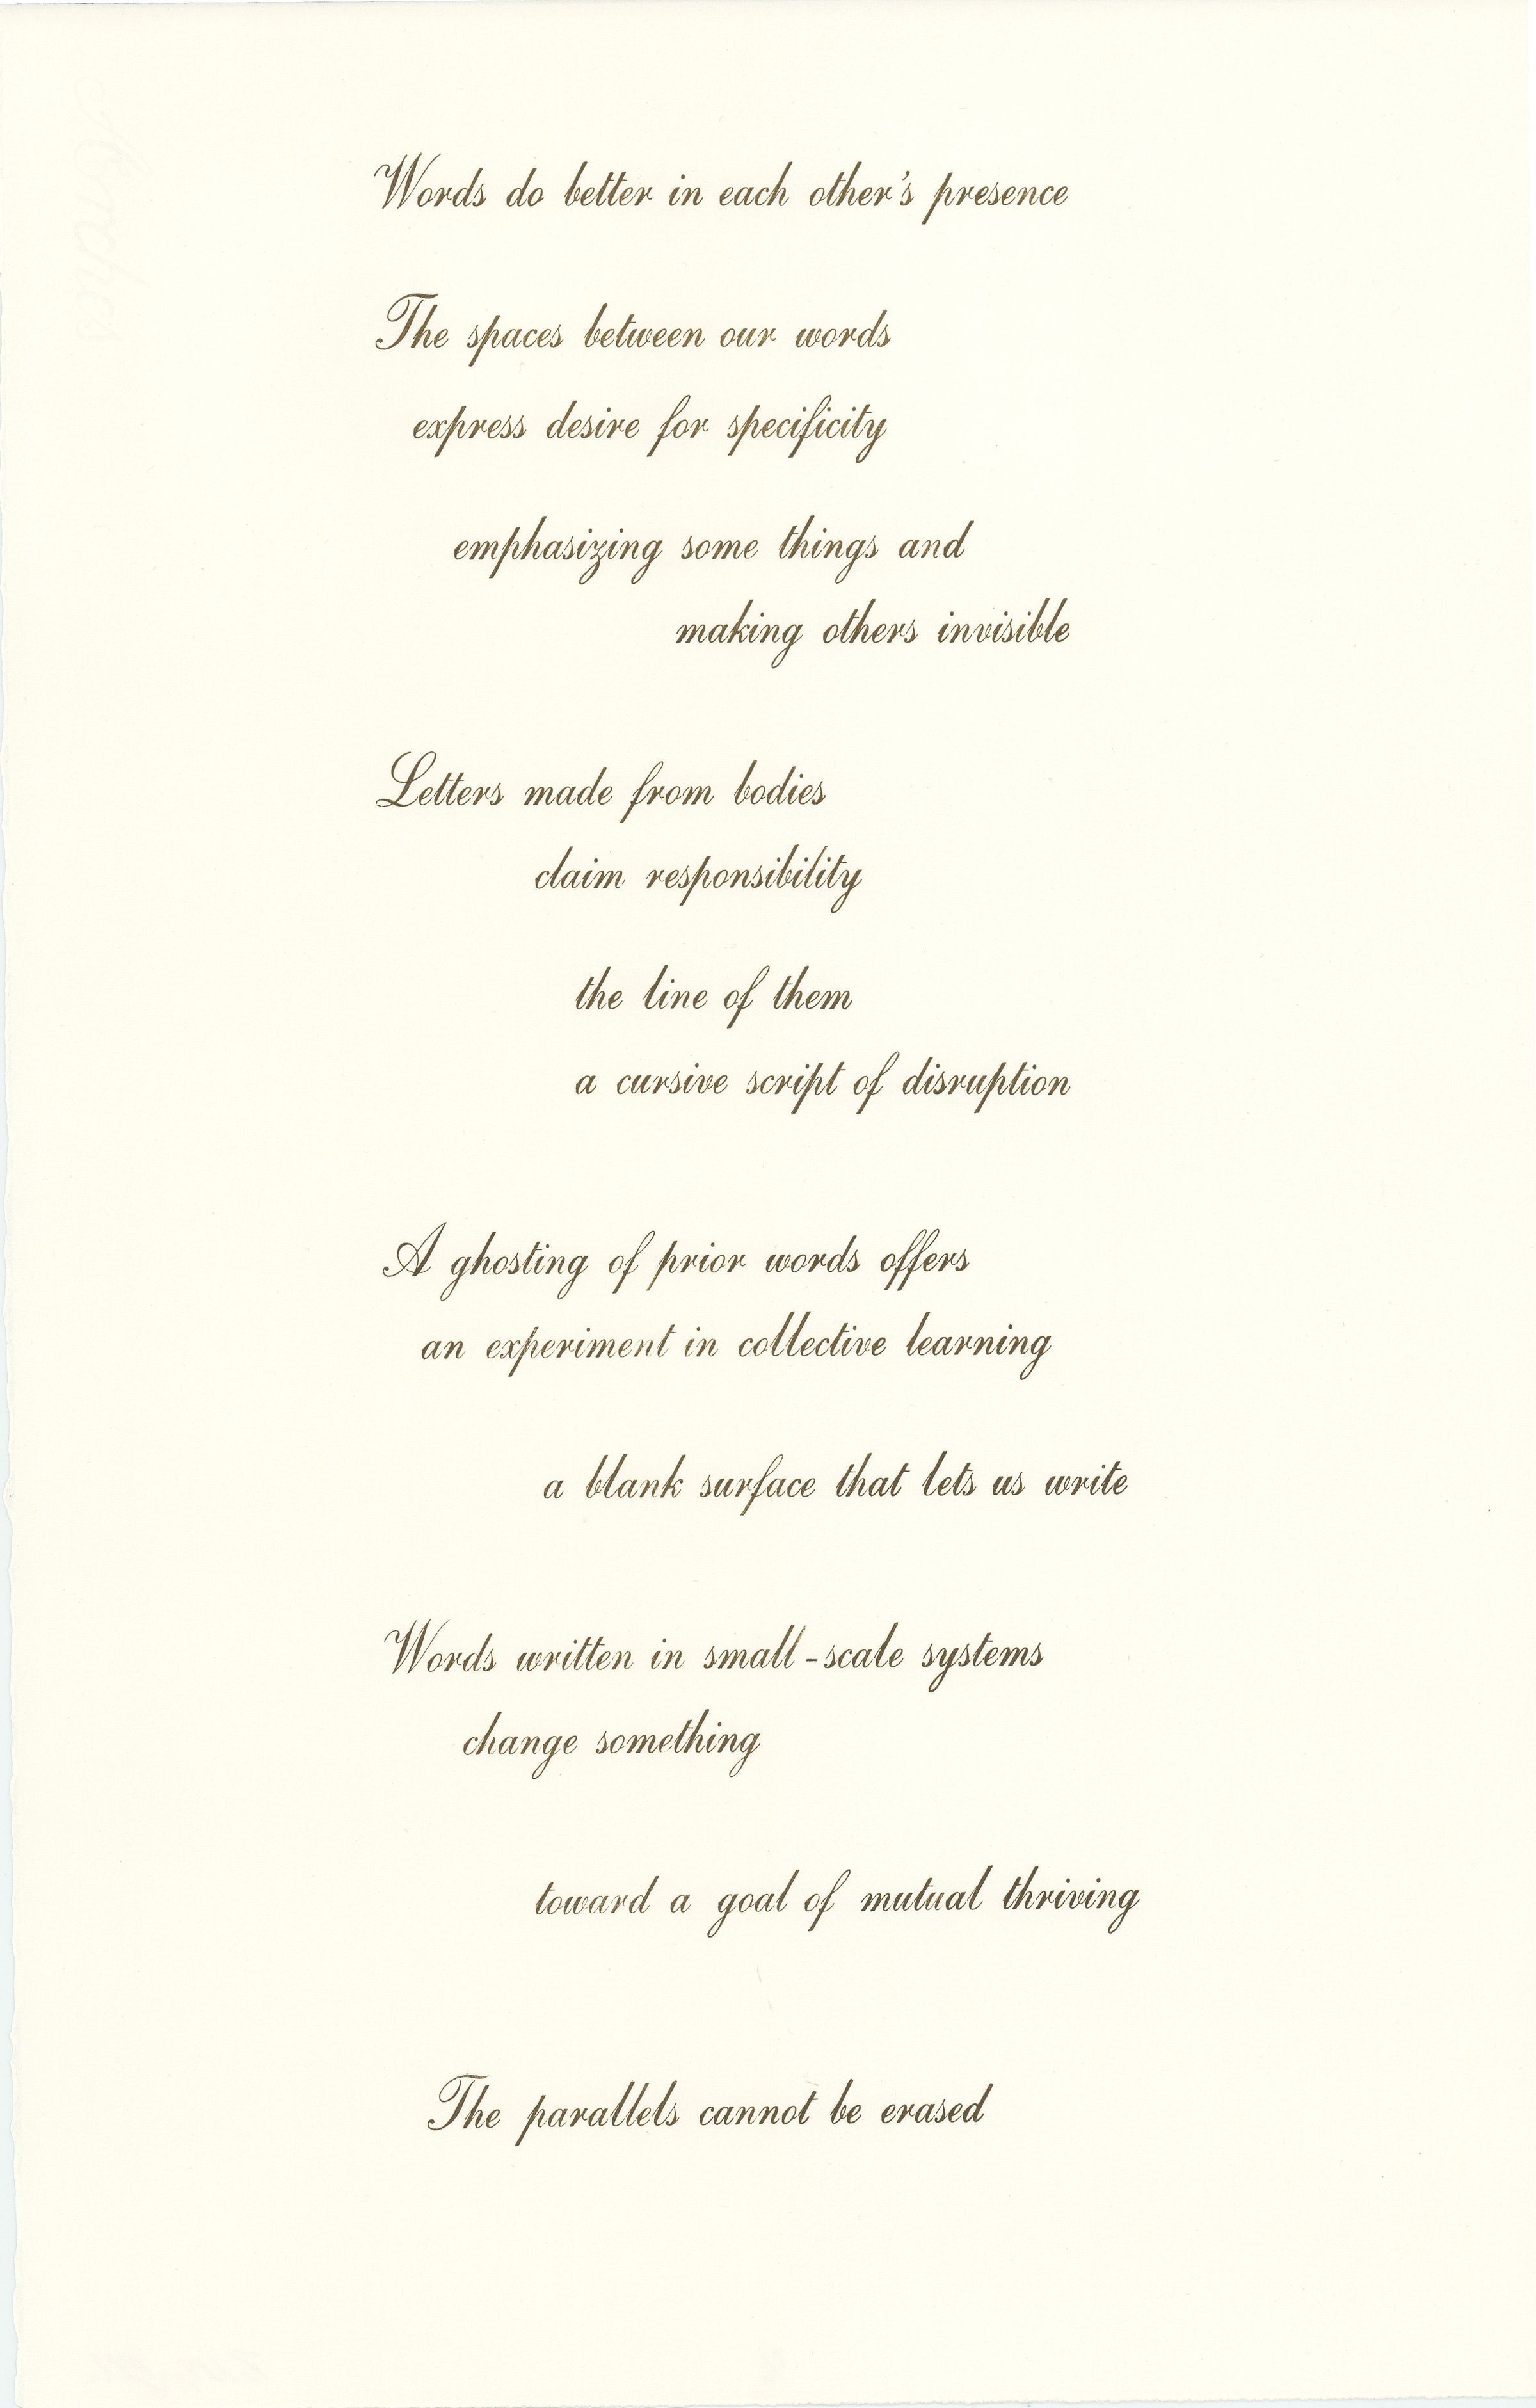 Words do better in each other's presence
The spaces between our words
express desire for specificity
emphasizing some things and
making others invisible
Letters made from bodies
claim responsibility
the line of them
a cursive script of disruption
A ghosting of prior words offers
an experiment in collective learning
a blank surface that lets us write
Words written in small-scale systems
change something
toward a goal of mutual thriving
The parallels cannot be erased